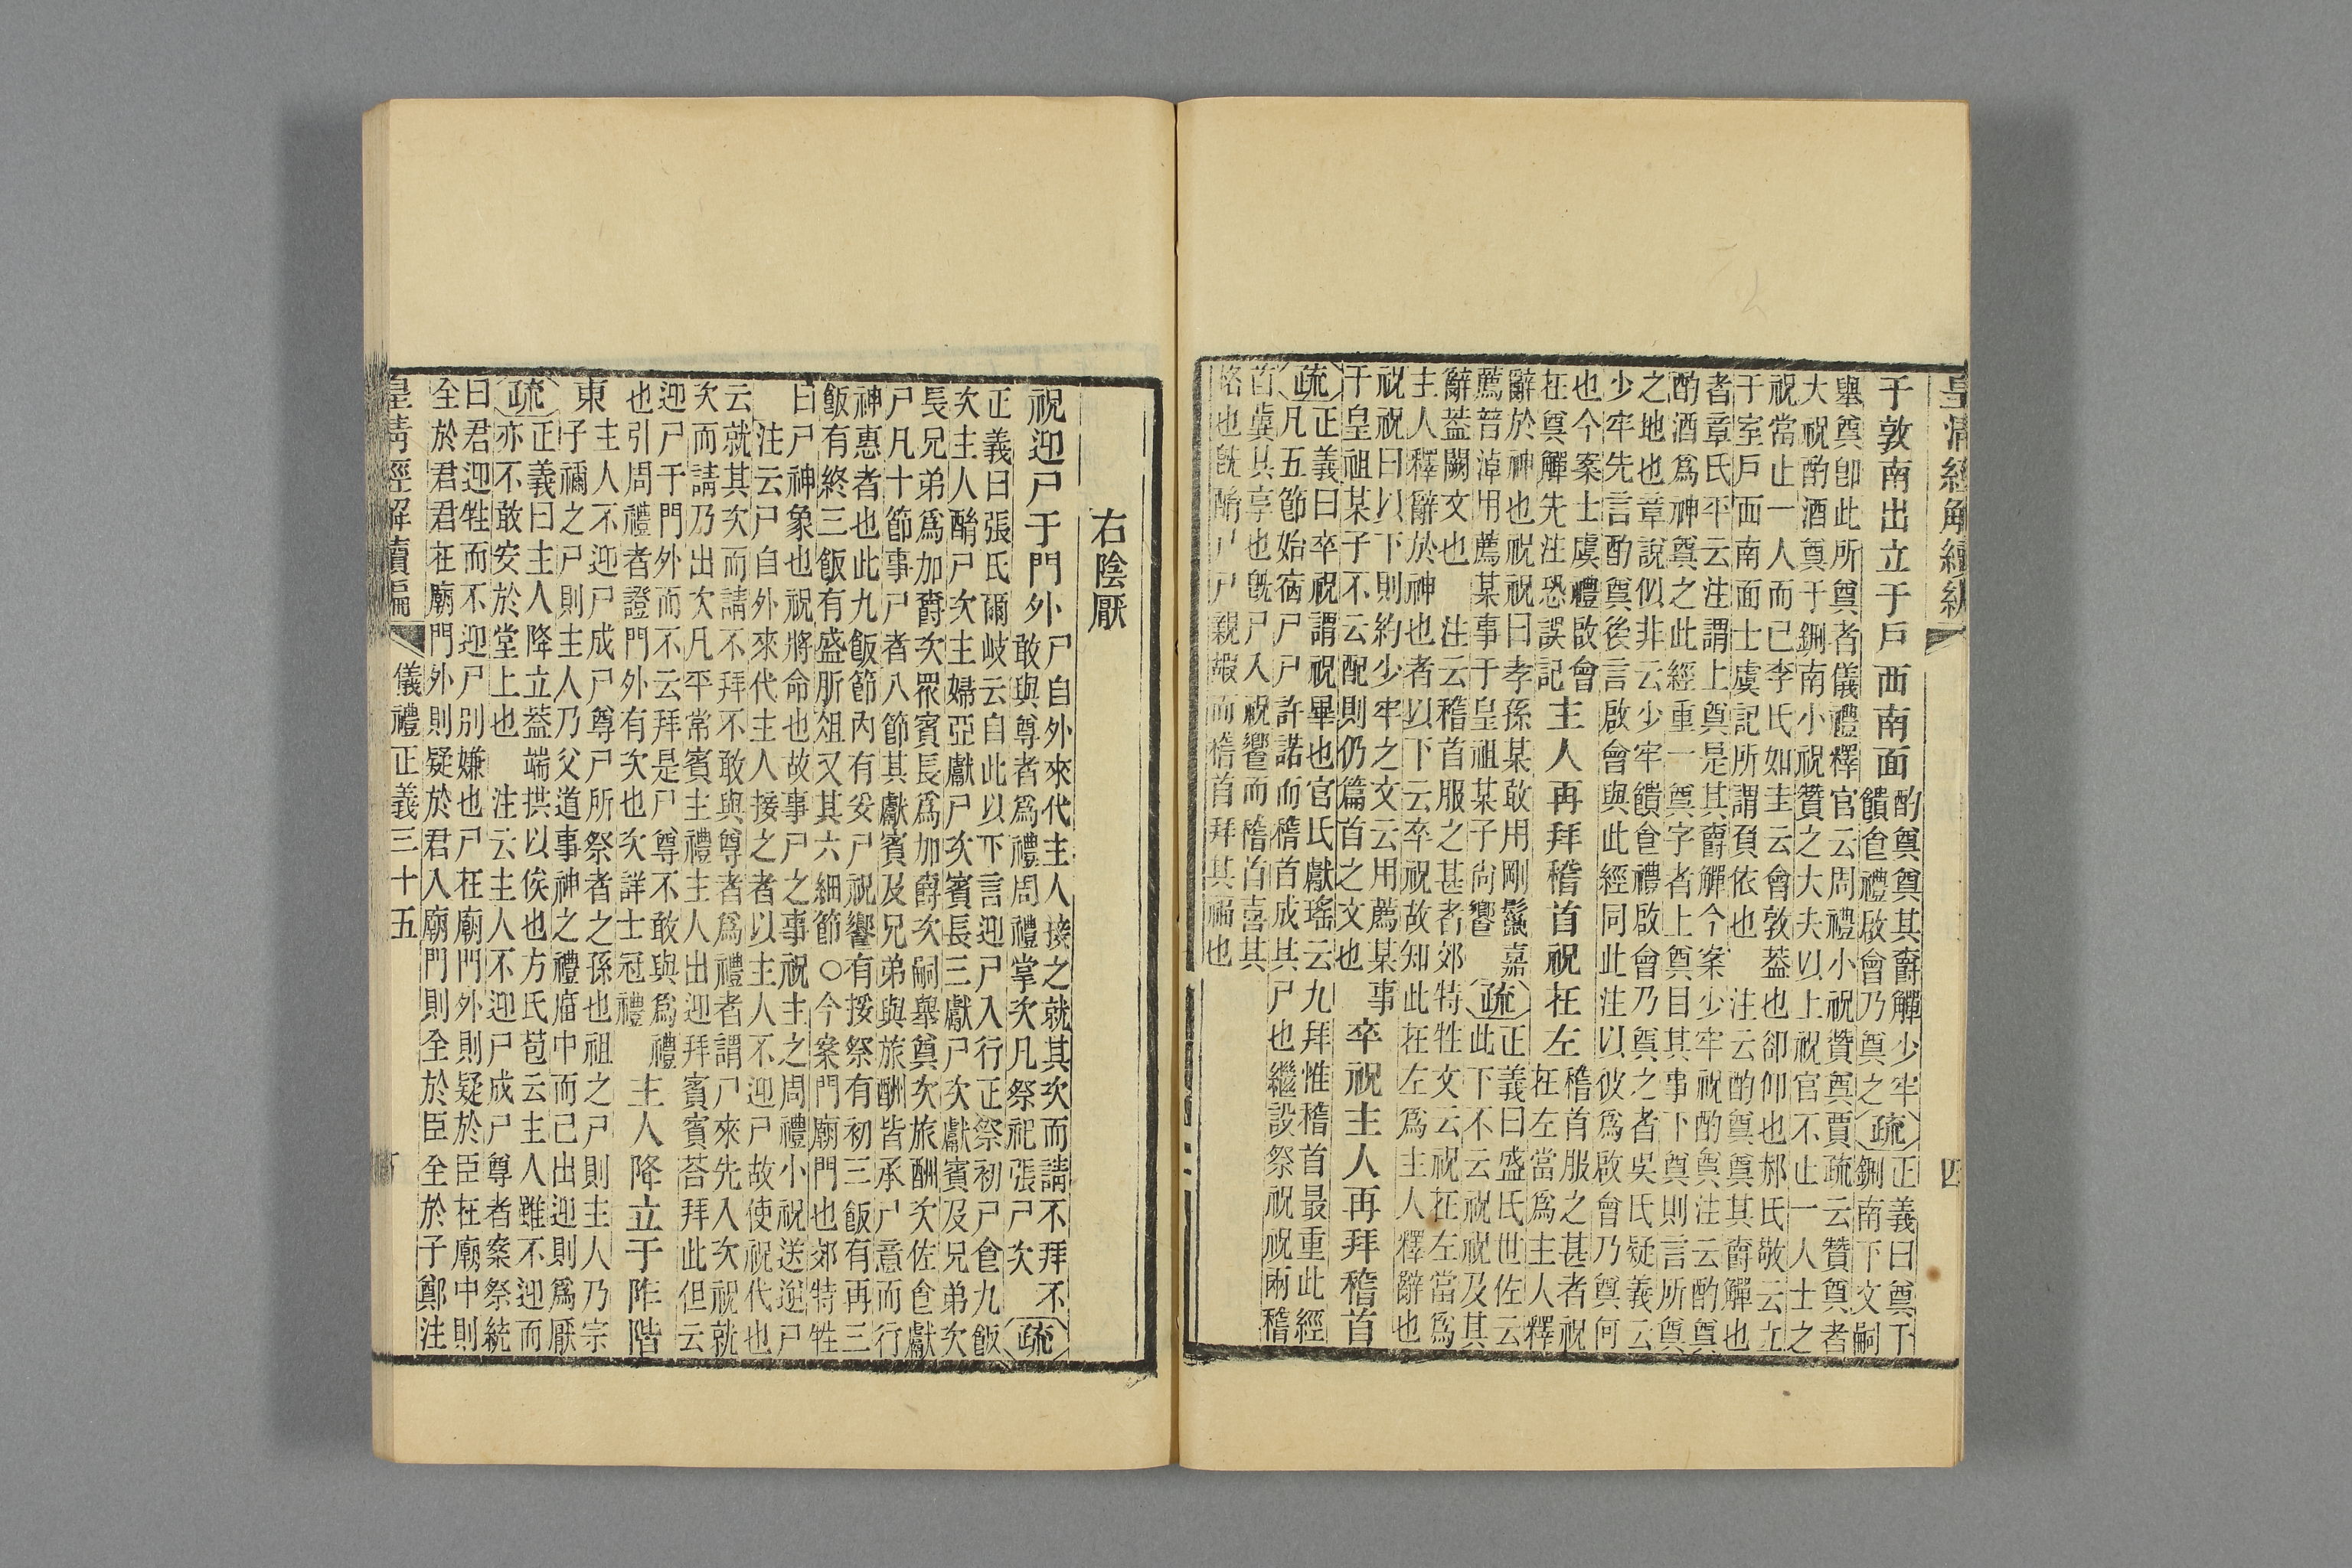 皇清經解續編 四
于敦南出立于戶西南面
酌奠奠其爵觶少牢
饋食禮啟會乃奠之
疏
正義曰奠于
鉶南下文嗣
舉奠卽此所奠者儀禮釋官云周禮小祝贊奠賈疏云贊奠者
大祝酌酒奠于鉶南小祝贊之大夫以上祝官不止一人士之
祝當止一人而已李氏如圭云會敦葢也卻仰也郝氏敬云立
于室戶而南面士虞記所謂負依也 注云酌奠奠其爵觶也
者章氏平云注謂上奠是其爵觶今案少牢祝酌奠注云酌奠
酌酒爲神奠之此經重一奠字者上奠目其事下奠則言所奠
之地也章說似非云少牢饋食禮啟會乃奠之者吳氏疑義云
少牢先言酌奠後言啟會與此經同此注以彼爲啟會乃奠何
也今案士虞禮啟會
在奠觶先注恐誤記
主人再拜稽首祝在左
稽首服之甚者祝
在左當爲主人釋
辭於神也祝祝曰孝孫某敢用剛鬣嘉
薦普淖用薦某事于皇祖某子尙饗
疏
正義曰盛氏世佐云
此下不云祝祝及其
辭葢闕文也 注云稽首服之甚者郊特牲文云祝在左當爲
主人釋辭於神也者以下云卒祝故知此在左爲主人釋辭也
祝祝曰以下則約少牢之文云用薦某事
于皇祖某子不云配則仍篇首之文也
卒祝主人再拜稽首
疏
正義曰卒祝謂祝畢也官氏獻瑤云九拜惟稽首最重此經
凡五節始宿尸尸許諾而稽首成其尸也繼設祭祝祝兩稽
首冀其享也旣尸入祝饗而稽首喜其
格也旣酳尸尸親嘏而稽首拜其福也
右陰厭
祝迎尸于門外
尸自外來代主人接之就其次而請不拜不
敢與尊者爲禮周禮掌次凡祭祀張尸次
疏
正義曰張氏爾岐云自此以下言迎尸入行正祭初尸食九飯
次主人酳尸次主婦亞獻尸次賓長三獻尸次獻賓及兄弟次
長兄弟爲加爵次眾賓長爲加爵次嗣舉奠次旅酬次佐食獻
尸凡十節事尸者八節其獻賓及兄弟與旅酬皆承尸意而行
神惠者也此九飯節內有妥尸祝饗有挼祭有初三飯有再三
飯有終三飯有盛肵俎又其六細節○今案門廟門也郊特牲
曰尸神象也祝將命也故事尸之事祝主之周禮小祝送逆尸
注云尸自外來代主人接之者以主人不迎尸故使祝代也
云就其次而請不拜不敢與尊者爲禮者謂尸來先入次祝就
次而請乃出次凡平常賓主禮主人出迎拜賓賓荅拜此但云
迎尸于門外而不云拜是尸尊不敢與爲禮
也引周禮者證門外有次也次詳士冠禮
主人降立于阼階
東
主人不迎尸成尸尊尸所祭者之孫也祖之尸則主人乃宗
子禰之尸則主人乃父道事神之禮庿中而已出迎則爲厭
疏
正義曰主人降立葢端拱以俟也方氏苞云主人雖不迎而
亦不敢安於堂上也 注云主人不迎尸成尸尊者案祭統
曰君迎牲而不迎尸別嫌也尸在廟門外則疑於臣在廟中則
全於君君在廟門外則疑於君入廟門則全於臣全於子鄭注
皇清經解續編 儀禮正義三十五